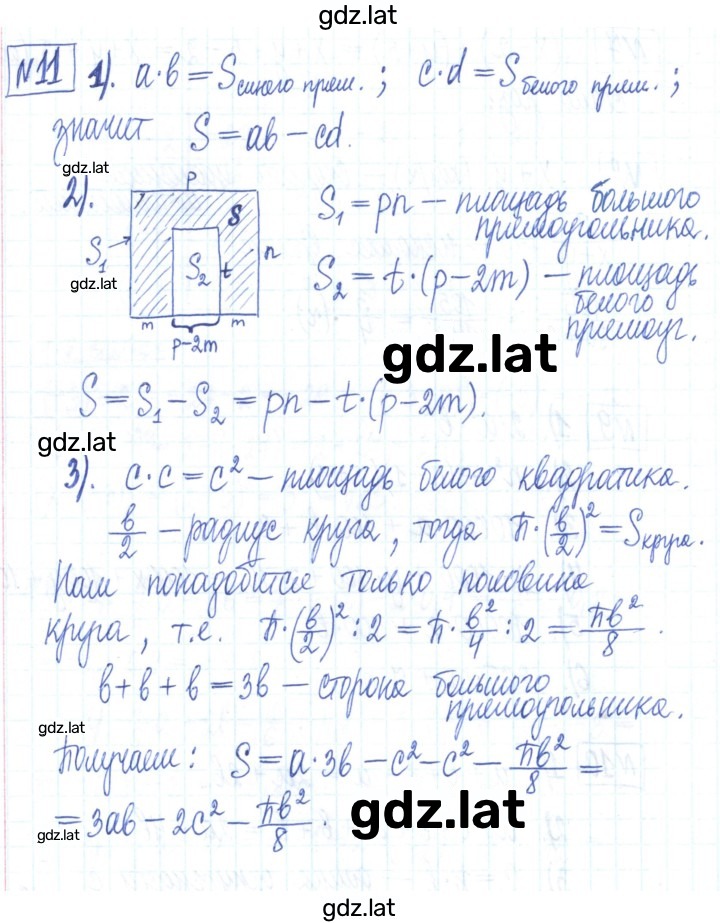 gdz.lat
№11 1). a·b = Sсинего прям. ; c·d = Sбелого прям. ;
значит S = ab – cd.
gdz.lat
2).
p
S
S₁
S₂
t
n
m
m
p–2m
gdz.lat
S₁ = pn – площадь большого
прямоугольника.
S₂ = t·(p–2m) – площадь
белого
прямоуг.
gdz.lat
S = S₁ – S₂ = pn – t·(p–2m).
gdz.lat
3). c·c = c² – площадь белого квадратика.
b/2 – радиус круга, тогда π·(b/2)² = Sкруга.
Нам понадобится только половина
круга, т.е. π·(b/2)² : 2 = π·b²/4 : 2 = πb²/8 .
b+b+b = 3b – сторона большого
прямоугольника.
gdz.lat
Получаем: S = a·3b – c² – c² – πb²/8 =
= 3ab – 2c² – πb²/8 .
gdz.lat
gdz.lat
gdz.lat